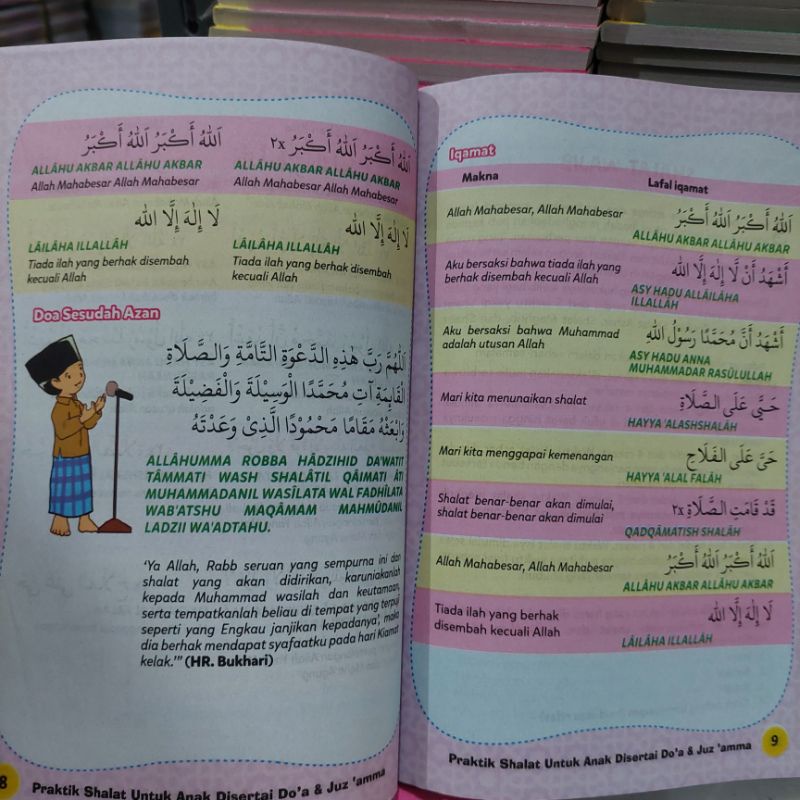 اَللهُ أَكْبَرُ اَللهُ أَكْبَرُ
اَللهُ أَكْبَرُ اَللهُ أَكْبَرُ ٢x
ALLÂHU AKBAR ALLÂHU AKBAR
ALLÂHU AKBAR ALLÂHU AKBAR
Allah Mahabesar Allah Mahabesar
Allah Mahabesar Allah Mahabesar
لَا إِلٰهَ إِلَّا الله
لَا إِلٰهَ إِلَّا الله
LÂILÂHA ILLALLÂH
LÂILÂHA ILLALLÂH
Tiada ilah yang berhak disembah
kecuali Allah
Tiada ilah yang berhak disembah
kecuali Allah
Doa Sesudah Azan
اَللّٰهُمَّ رَبَّ هٰذِهِ الدَّعْوَةِ التَّامَّةِ وَالصَّلَاةِ
الْقَائِمَةِ آتِ مُحَمَّدًا الْوَسِيْلَةَ وَالْفَضِيْلَةَ
وَابْعَثْهُ مَقَامًا مَحْمُوْدًا الَّذِيْ وَعَدْتَهُ
ALLÂHUMMA ROBBA HÂDZIHID DA'WATIT
TÂMMATI WASH SHALÂTIL QÂIMATI ÂTI
MUHAMMADANIL WASÎLATA WAL FADHÎLATA
WAB'ATSHU MAQÂMAM MAHMÛDANIL
LADZII WA'ADTAHU.
'Ya Allah, Rabb seruan yang sempurna ini dan
shalat yang akan didirikan, karuniakanlah
kepada Muhammad wasilah dan keutamaan,
serta tempatkanlah beliau di tempat yang terpuji
seperti yang Engkau janjikan kepadanya', maka
dia berhak mendapat syafaatku pada hari Kiamat
kelak.'" (HR. Bukhari)
8 Praktik Shalat Untuk Anak Disertai Do'a & Juz 'amma
Iqamat
Makna Lafal iqamat
Allah Mahabesar, Allah Mahabesar
اَللهُ أَكْبَرُ اَللهُ أَكْبَرُ
ALLÂHU AKBAR ALLÂHU AKBAR
Aku bersaksi bahwa tiada ilah yang
berhak disembah kecuali Allah
أَشْهَدُ أَنْ لَا إِلٰهَ إِلَّا الله
ASY HADU ALLÂILÂHA
ILLALLÂH
Aku bersaksi bahwa Muhammad
adalah utusan Allah
أَشْهَدُ أَنَّ مُحَمَّدًا رَسُوْلُ اللهِ
ASY HADU ANNA
MUHAMMADAR RASÛLULLAH
Mari kita menunaikan shalat
حَيَّ عَلَى الصَّلَاةِ
HAYYA 'ALASHSHALÂH
Mari kita menggapai kemenangan
حَيَّ عَلَى الْفَلَاحِ
HAYYA 'ALAL FALÂH
Shalat benar-benar akan dimulai,
shalat benar-benar akan dimulai
قَدْ قَامَتِ الصَّلَاةِ ٢x
QADQÂMATISH SHALÂH
Allah Mahabesar, Allah Mahabesar
اَللهُ أَكْبَرُ اَللهُ أَكْبَرُ
ALLÂHU AKBAR ALLÂHU AKBAR
Tiada ilah yang berhak
disembah kecuali Allah
لَا إِلٰهَ إِلَّا الله
LÂILÂHA ILLALLÂH
Praktik Shalat Untuk Anak Disertai Do'a & Juz 'amma 9